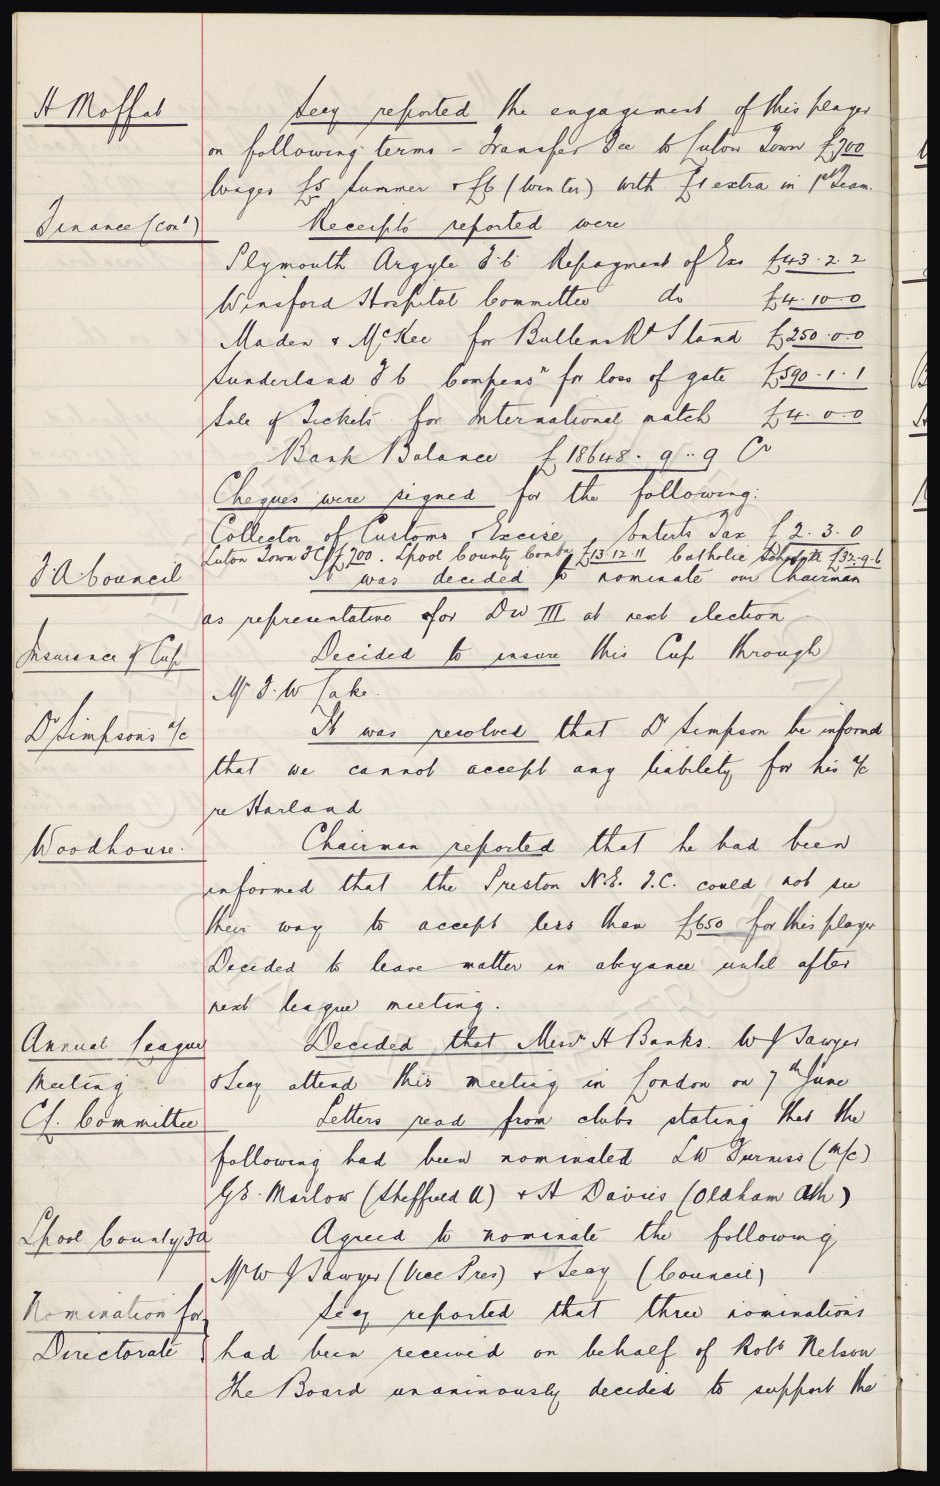 H Moffat
Secy reported the engagement of this player
on following terms - Transfer Fee to Luton Town £700
Wages £5 Summer & £6 (Winter) with £1 extra in 1st Team.
Finance (cont)
Receipts reported were
Plymouth Argyle F.C. Repayment of Exs £43.2.2
Winsford Hospital Committee do £4.10.0
Maden & McKee for Bullens Rd Stand £250.0.0
Sunderland F C Compensn for loss of gate £590.1.1
Sale of Tickets for International match £4.0.0
Bank Balance £18648.9.9 Cr
Cheques were signed for the following:
Collector of Customs & Excise Enterts Tax £2.3.0
Luton Town F C £700. Lpool County Combn £13.12.11 Catholic £32.9.6
F A Council
It was decided to nominate our Chairman
as representative for Div III at next election
Insurance of Cup
Decided to insure this Cup through
Mr F. W Lake.
Dr Simpsons a/c
It was resolved that Dr Simpson be informed
that we cannot accept any liability for his a/c
re Harland
Woodhouse.
Chairman reported that he had been
informed that the Preston N.E. F.C. could not see
their way to accept less than £650 for this player
Decided to leave matter in abeyance until after
next league meeting.
Annual League
Meeting
Decided that Messrs H Banks. W J Sawyer
& Secy attend this meeting in London on 7th June
CL. Committee
Letters read from clubs stating that the
following had been nominated L W Furniss (M/c)
G E. Marlow (Sheffield U) & H Davies (Oldham Ath)
Lpool County FA
Agreed to nominate the following
Mr W J Sawyer (Vice Pres) & Secy (Council)
Nomination for
Directorate
Secy reported that three nominations
had been received on behalf of Robt Nelson
The Board unanimously decided to support the